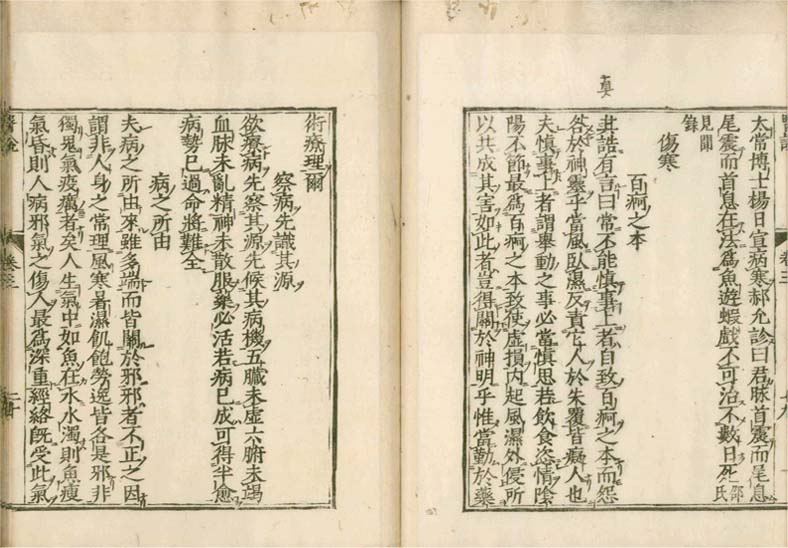 太常博士楊日宣病寒郝允診曰君脉首震而尾息
尾震而首息在法為魚遊蝦戲不可治不數日死邵氏
見聞
錄
傷寒
百痾之本
真
其誥有言曰常不能慎事上者自致百痾之本而怨
咎於神靈乎當風臥濕反責它人於朱覆皆癡人也
夫慎事上者謂舉動之事必當慎思若飲食恣情陰
陽不節最為百痾之本致使虛損内起風濕外侵所
以共成其害如此者豈得關於神明乎惟當勤於藥
術療理爾
察病先識其源
欲療病先察其源先候其病機五臟未虛六腑未竭
血脉未亂精神未散服藥必活若病已成可得半愈
病勢已過命將難全
病之所由
夫病之所由來雖多端而皆關於邪邪者不正之因
謂非人身之常理風寒暑濕飢飽勞逸皆各是邪非
獨鬼氣疫癘者矣人生氣中如魚在水水濁則魚瘦
氣昏則人病邪氣之傷人最為深重經絡旣受此氣
醫說
卷三